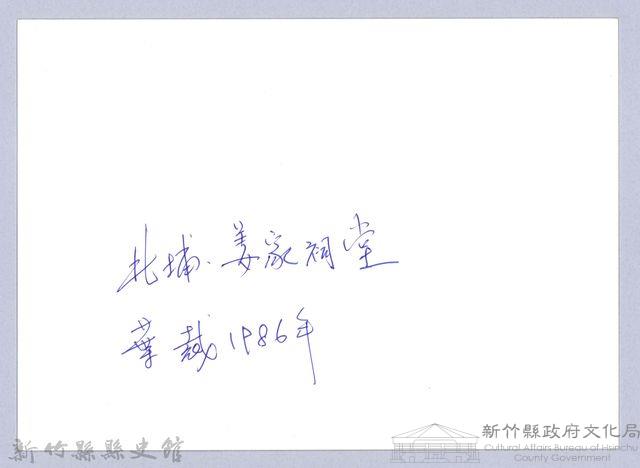 北埔．姜家祠堂
葉裁1986年
新竹縣縣史館
新竹縣政府文化局
Cultural Affairs Bureau of Hsinchu
County Government